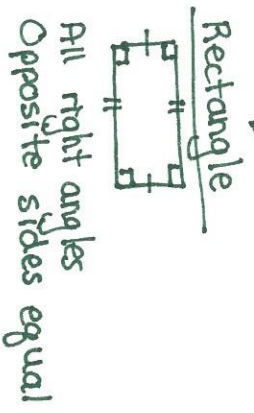 Rectangle
All right angles
Opposite sides equal